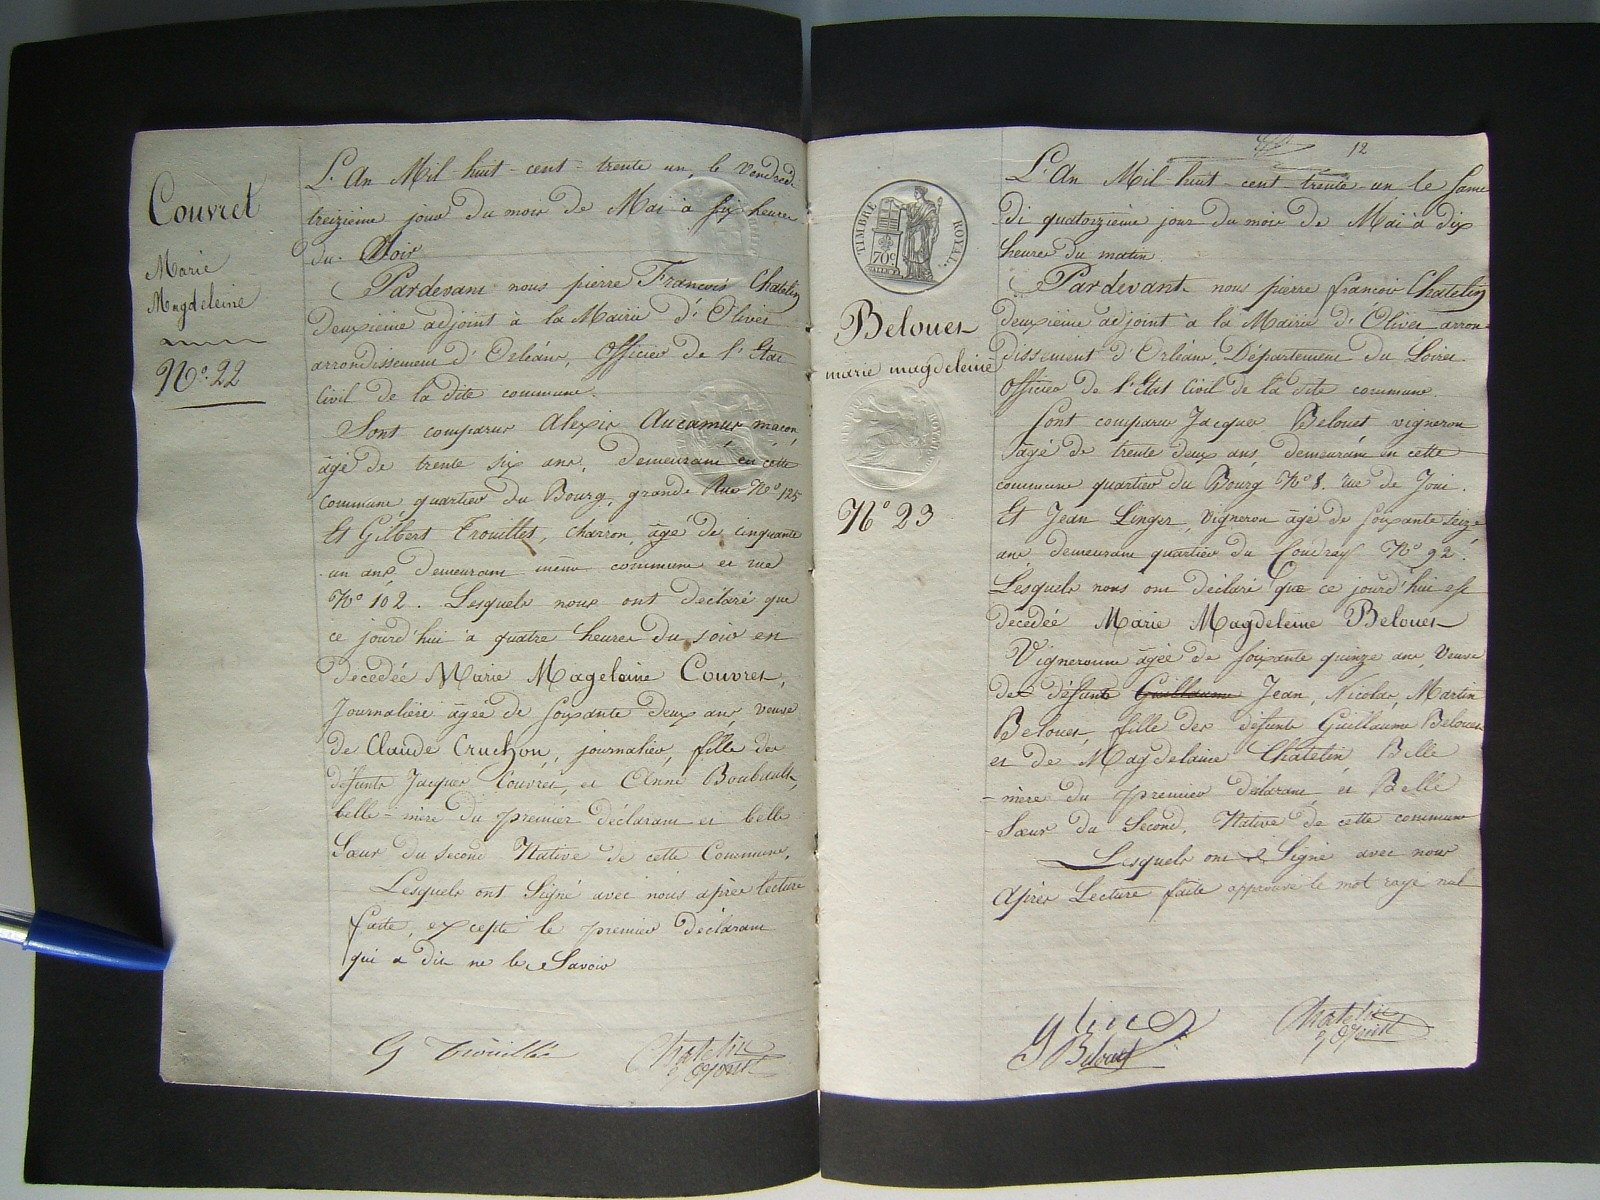 Couvret
Marie
Magdeleine
N.º 22
L'An Mil huit-cent-trente un, le Vendredi
treizième jour du mois de Mai à six heures
du Soir
Pardevant nous pierre François Chatelin
Deuxième adjoint à la Mairie d'Olivet
arrondissement d'Orléans, Officier de l'Etat
Civil de la dite commune.
Sont comparus Alexis Aucamus maçon
âgé de trente six ans, demeurant en cette
commune quartier du Bourg, grande Rue Nº 125
Et Gilbert Trouillet, Charron, âgé de cinquante
un ans demeurant même commune et rue
Nº 102. Lesquels nous ont déclaré que
ce jourd'hui à quatre heures du soir est
décédée Marie Magelaine Couvret,
Journalière âgée de soixante deux ans, veuve
de Claude Cruchon, journalier, fille des
défunts Jacques Couvret, et Anne Boubault,
belle-mère du premier déclarant et belle
Sœur du second Native de cette Commune.
Lesquels ont Signé avec nous après lecture
faite, excepté le premier déclarant
qui a dit ne le Savoir
G Trouillé
Chatelin
adjoint
12
TIMBRE ROYAL
70c
Belouet
marie magdeleine
Nº 23
L'An Mil huit-cent-trente-un le Same
di quatorzième jour du mois de Mai à dix
heures du matin
Pardevant nous pierre françois Chatelin
deuxième adjoint à la Mairie d'Olivet arron
dissement d'Orléans, Département du Loiret
Officier de l'Etat Civil de la dite commune.
Sont comparus Jacques Belouet vigneron
âgé de trente deux ans demeurant en cette
commune quartier du Bourg Nº 8. rue de Joui.
Et Jean Linger, vigneron âgé de soixante seize
ans demeurant quartier du Coudray Nº 92.
Lesquels nous ont déclaré que ce jourd'hui est
décédée Marie Magdeleine Belouet
Vigneronne âgée de soixante quinze ans, Veuve
de défunt Guillaume Jean, Nicolas, Martin
Belouet, fille des défunts Guillaume Belouet
et de Magdelaine Chatelin Belle
-mère du premier déclarant, et Belle
-Sœur du Second, Native de cette commune
Lesquels ont Signé avec nous
Après Lecture faite approuvé le mot rayé nul
Belouet
Chatelin
adjoint